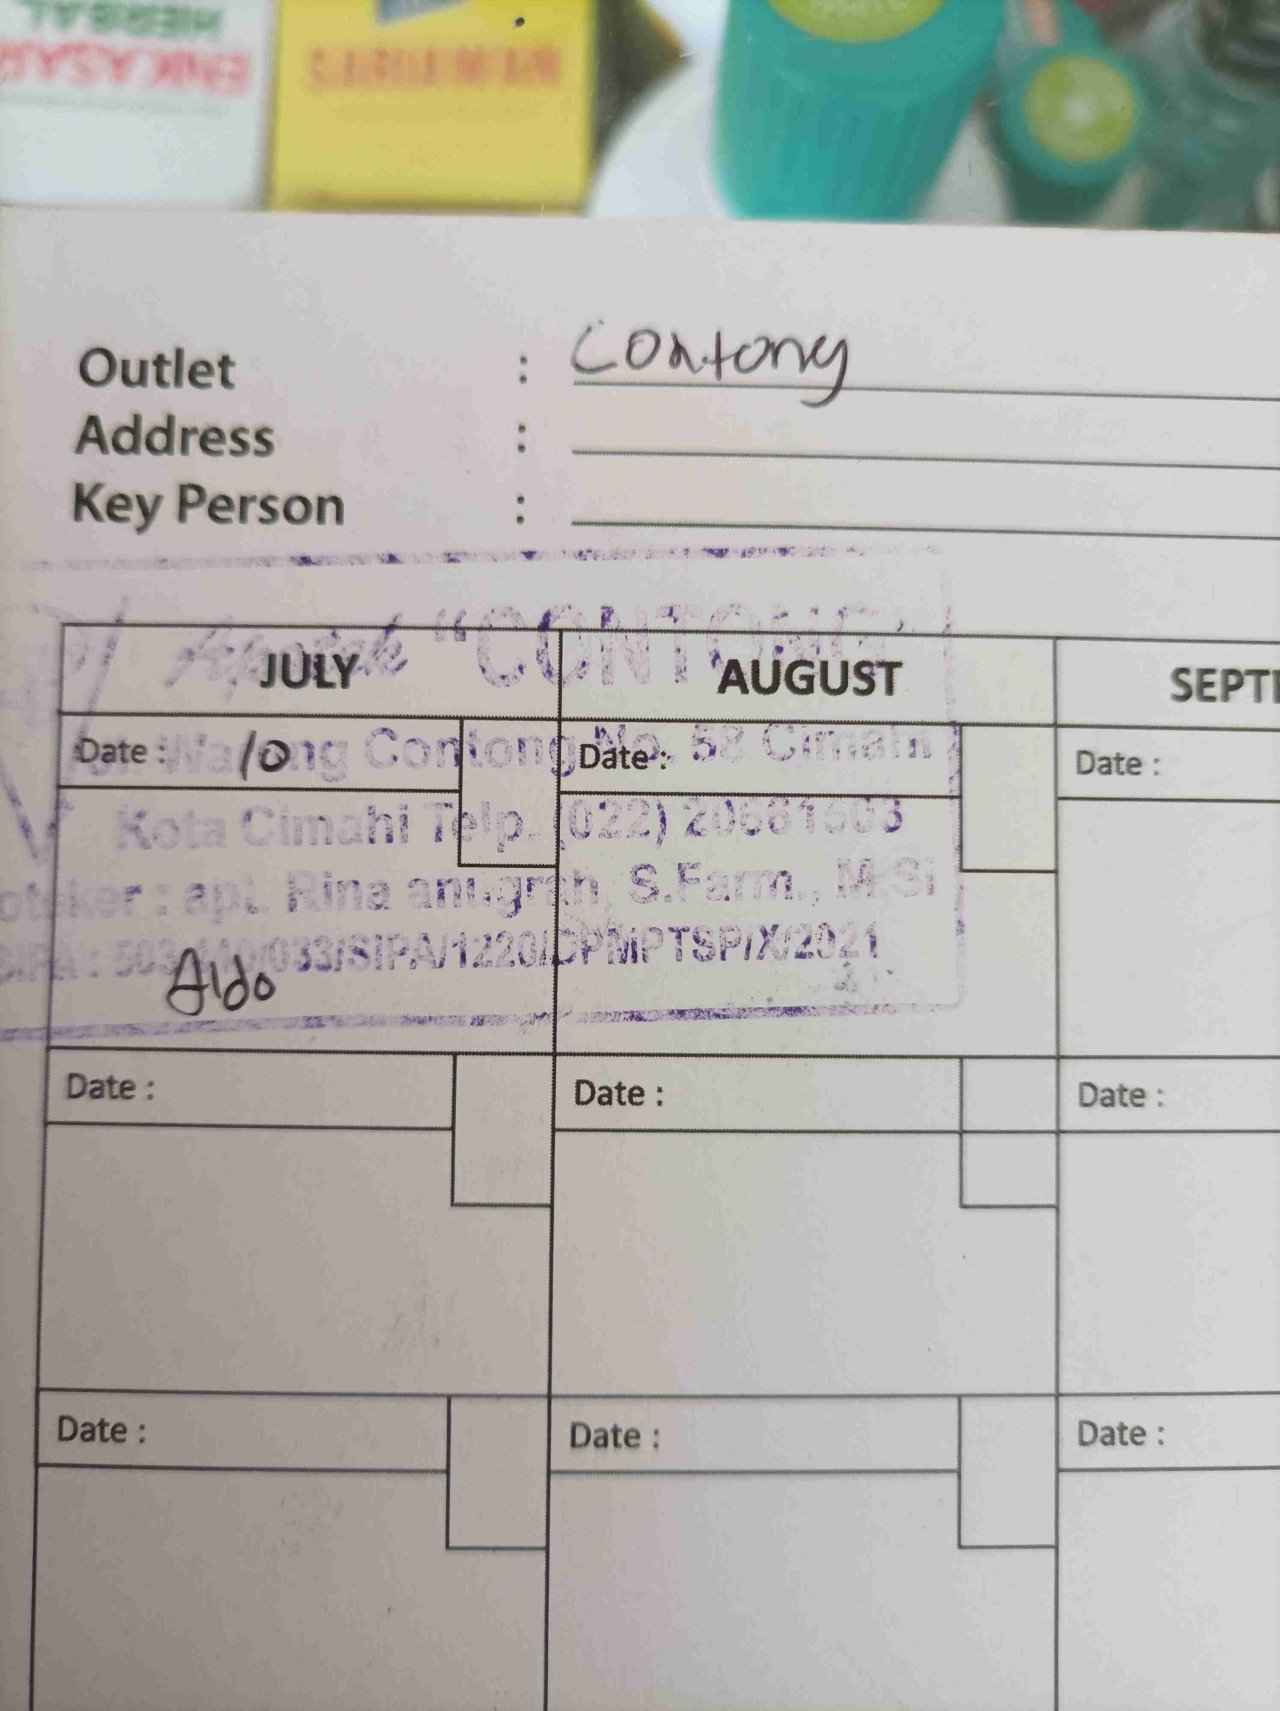 ENKASARI
HERBAL
Outlet : Contong
Address :
Key Person :
Apotek "CONTONG"
JULY AUGUST
Date : 10 Date : Date :
Contong No. 58 Cimahi
Kota Cimahi Telp. (022)
apt. Rina anugrah, S.Farm., M.Si
/033/SIPA/1220/DPMPTSP/X/2021
Aldo
Date : Date : Date :
Date : Date : Date :